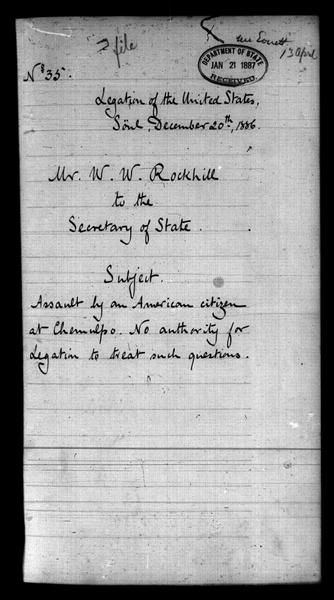 file
13 April
DEPARTMENT OF STATE
JAN 21 1887
RECEIVED.
No 35.
Legation of the United States,
Söul, December 20th, 1886.
Mr. W. W. Rockhill
to the
Secretary of State.
Subject.
Assault by an American citizen
at Chemulpo. No authority for
Legation to treat such questions.